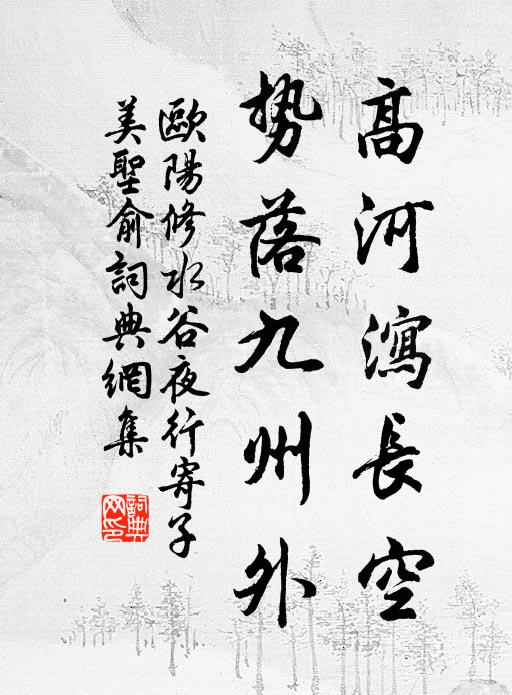 高河瀉長空
势落九州外
歐陽修水谷夜行寄子
美聖俞詞典網集